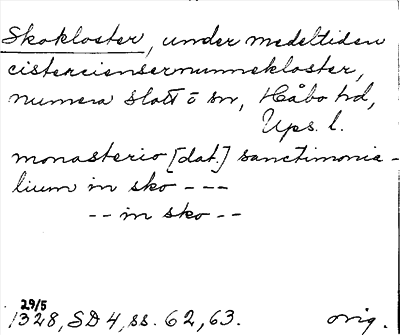 Skokloster, under medeltiden
cisterciensernunnekloster,
numera slott o sn, Håbo hd,
Ups. l.
monasterio [dat.] sanctimonia-
lium in sko ---
-- in sko --
29/5
1328, SD 4, ss. 62, 63. orig.